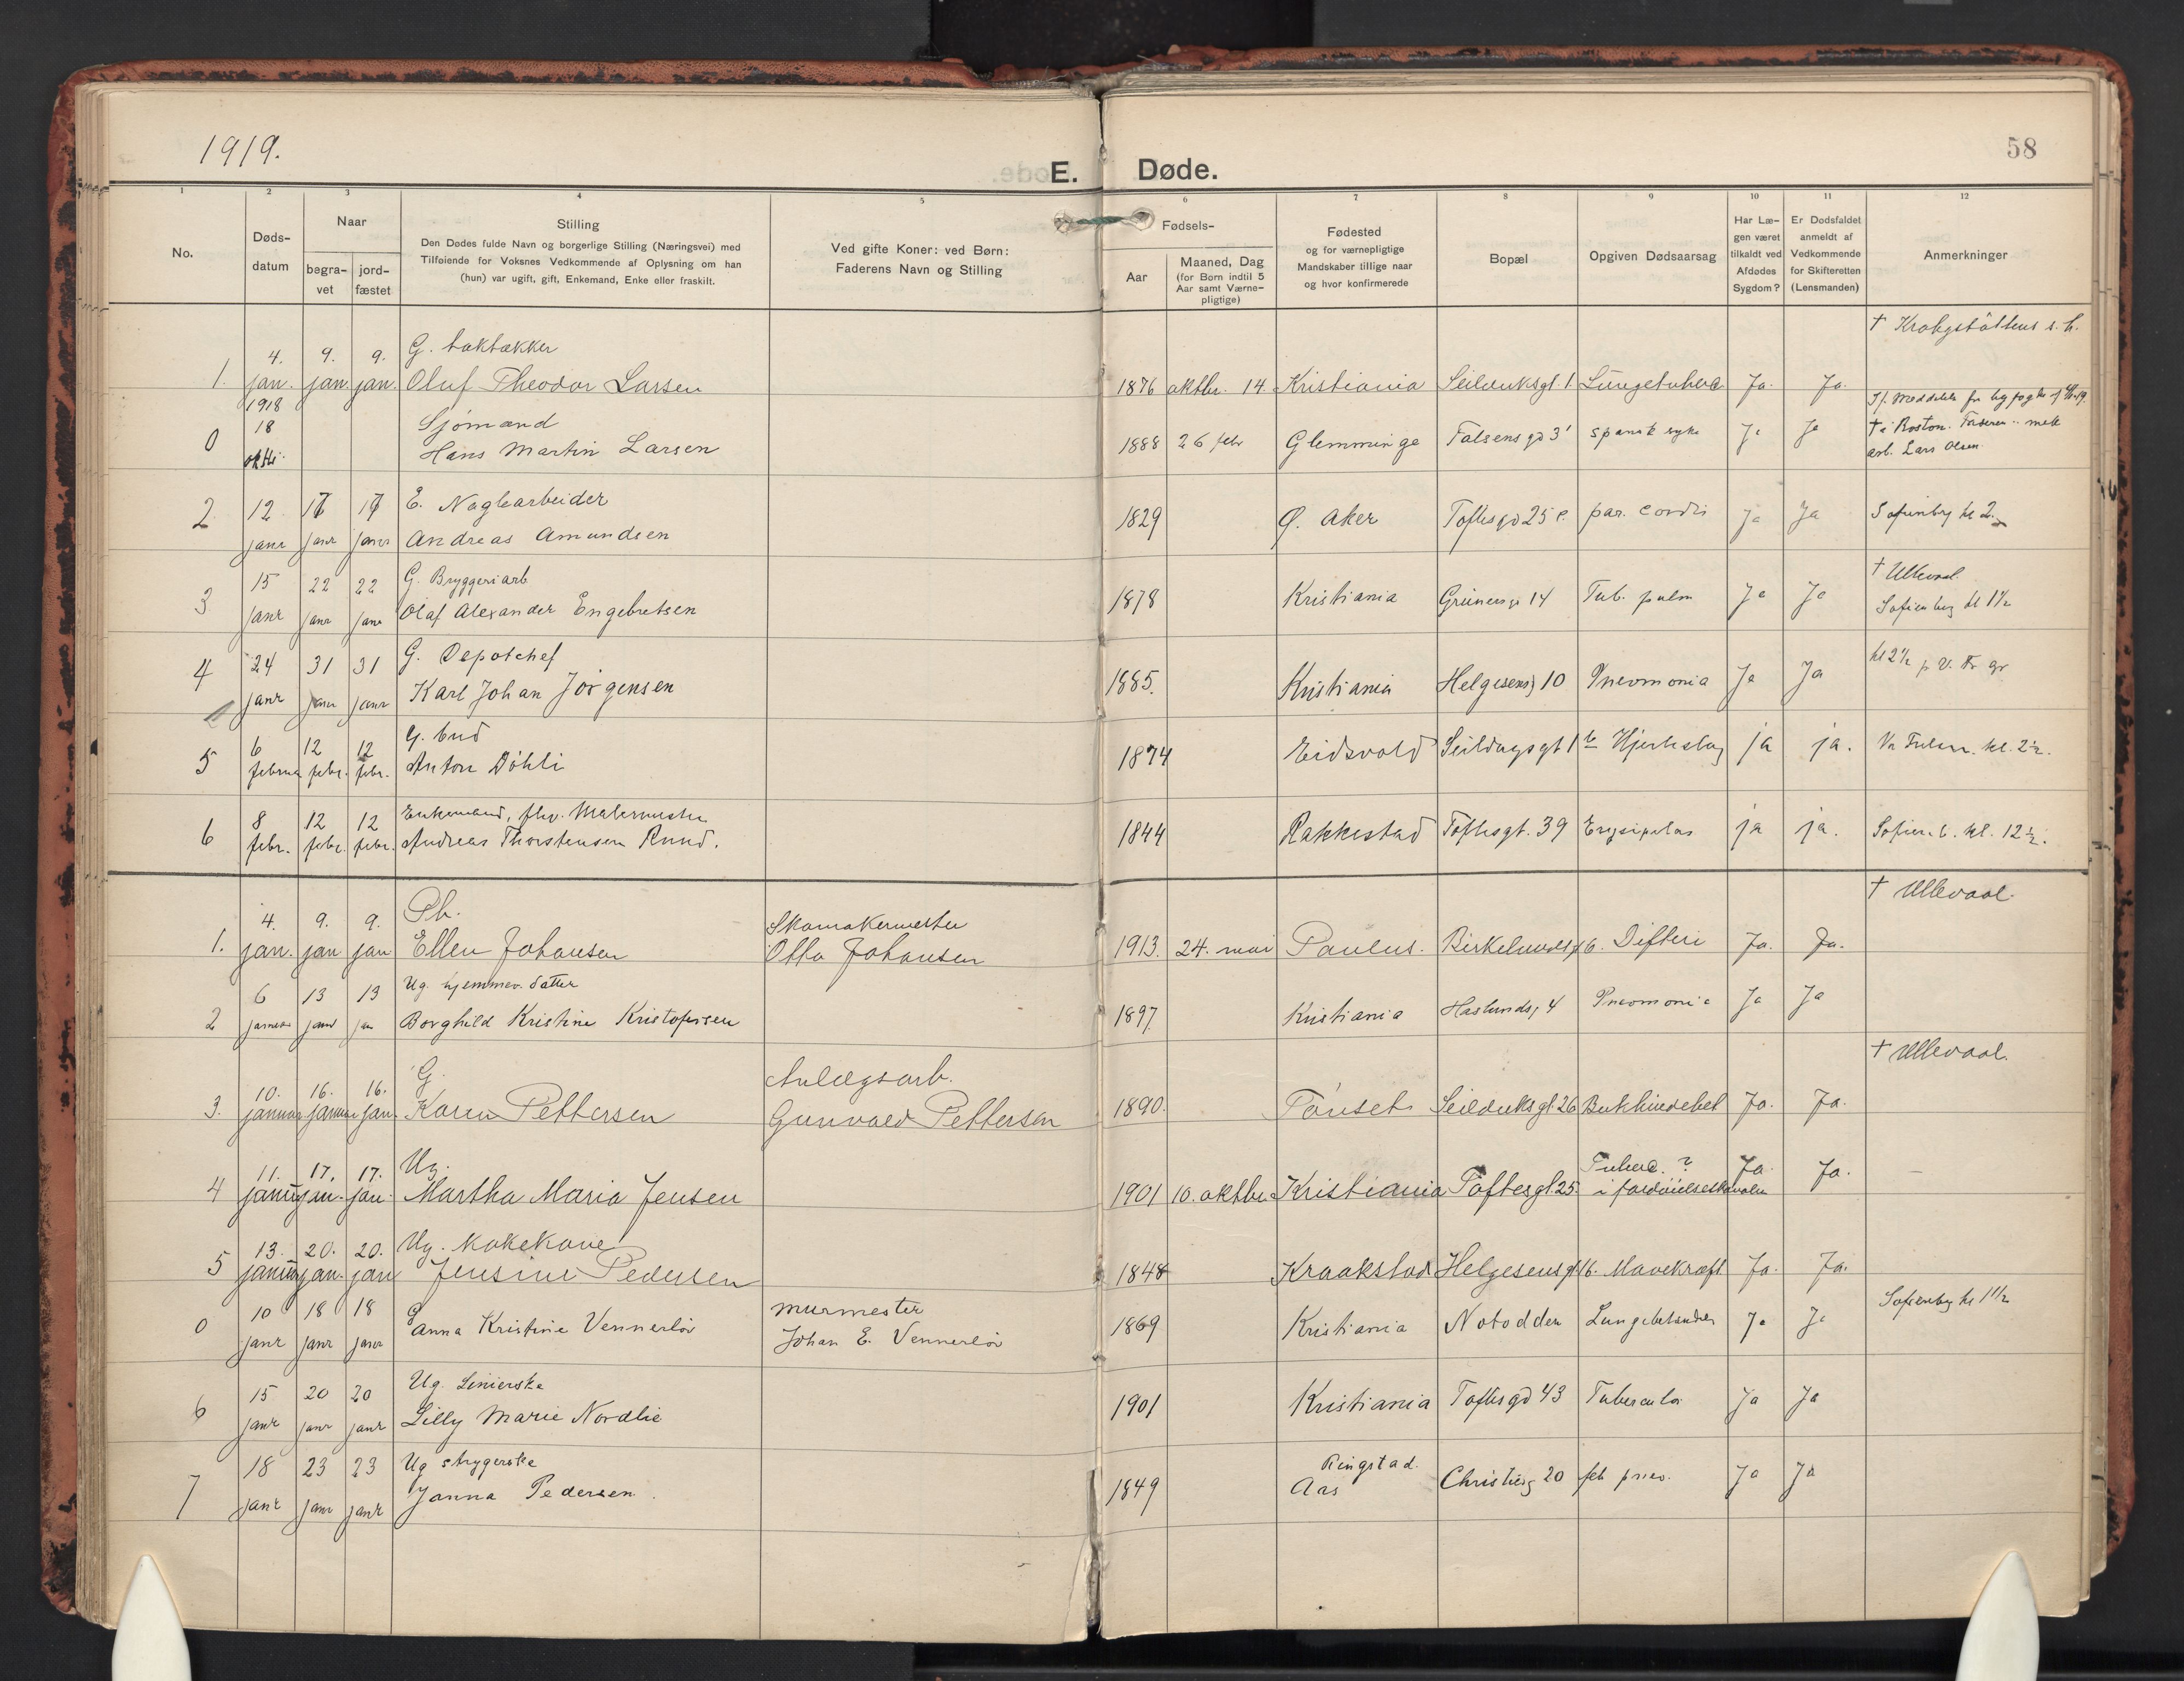 1919.
58
E. Døde.
1 2 3 4 5 6 7 8 9 10 11 12
No.
Døds-
datum
Naar
begra-
vet
jord-
fæstet
Stilling
Den Dødes fulde Navn og borgerlige Stilling (Næringsvei) med
Tilføiende for Voksnes Vedkommende af Oplysning om han
(hun) var ugift, gift, Enkemand, Enke eller fraskilt.
Ved gifte Koner: ved Børn:
Faderens Navn og Stilling
Fødsels-
Aar
Maaned, Dag
(for Børn indtil 5
Aar samt Værne-
pligtige)
Fødested
og for værnepligtige
Mandskaber tillige naar
og hvor konfirmerede
Bopæl
Opgiven Dødsaarsag
Har Læ-
gen været
tilkaldt ved
Afdødes
Sygdom?
Er Dødsfaldet
anmeldt af
Vedkommende
for Skifteretten
(Lensmanden)
Anmerkninger
† Krohgstøttens s. h.
4. 9. 9. G. taktækker
1. jan. jan. jan. Oluf Theodor Larsen 1876 oktbr. 14 Kristiania Seilduksgt. 1. Lungetuberc Ja. Ja.
1918
18 Sjømand
0 oktbr. Hans Martin Larsen 1888 26 febr Glemminge Falsens gd 3 spansk syke Ja Ja † i Boston.
arb. Lars Olsen
12 17 17 E. Naglearbeider
2 janr janr janr Andreas Amundsen 1829 Ø. Aker Toftesgd 25 par. cordis Ja Ja Sofienbg kl 2.
15 22 22 G. Bryggeriarb † Ullevaal.
3 janr janr janr Olaf Alexander Engebretsen 1878 Kristiania Grünersg 14 Tub. pulm Ja Ja Sofienberg kl 1½
24 31 31 G. Depotchef kl 2½ p V. Fr gr
4 janr janr janr Karl Johan Jørgensen 1885. Kristiania Helgesensg 10 Pneomonia Ja Ja
6 12 12 G. bud
5 februar febr. febr. Anton Døhli 1874 Eidsvold Seildugsgt 1 Hjerteslag ja ja. kl. 2½.
8 12 12 Enkemand, fhv. Malermester
6 febr. febr. febr. Andreas Thorstensen Ruud. 1844 Rakkestad Toftesgt. 39 Erysipelas ja ja. Sofien b. kl. 12½.
† Ullevaal.
4. 9. 9. Pb. Skomakermester
1. jan. jan jan Ellen Johansen Otto Johansen 1913. 24. mai Paulus. Birkelundsg 6. Difteri Ja. Ja.
6 13 13 Ug. hjemmev. datter
2 januar janr jan Borghild Kristine Kristofersen 1897 Kristiania Haslundsg 4 Pneomonia Ja Ja
† Ullevaal.
10. 16. 16. G. Anlægsarb.
3. januar januar jan. Karen Pettersen Gunvald Pettersen 1890. Tønset Seilduksgt. 26 Bukhindebet Ja. Ja.
11. 17. 17. Ug. Tuberc. ?
4 januar jan. jan. Martha Maria Jensen 1901 10. oktbr. Kristiania Toftesgt 25. i fordøielseskanalen Ja. Ja.
13. 20. 20. Ug. kokekone
5 januar jan. jan Jensine Pedersen 1848 Kraakstad Helgesensgt 16. Mavekræft Ja. Ja.
10 18 18 G murmester Sofienbg kl 1½
0 janr janr janr Anna Kristine Vennerløv Johan E. Vennerløv 1869 Kristiania Notodden Lungebetændelse Ja Ja
15 20 20 Ug. Linierske
6 janr janr janr Lilly Marie Nordlie 1901 Kristiania Toftesgd 43 Tuberculos Ja Ja
18 23 23 Ug strygerske Ringstad.
7 janr janr janr Janna Pedersen. 1849 Aas Christiesg 20 feb pneo. Ja Ja